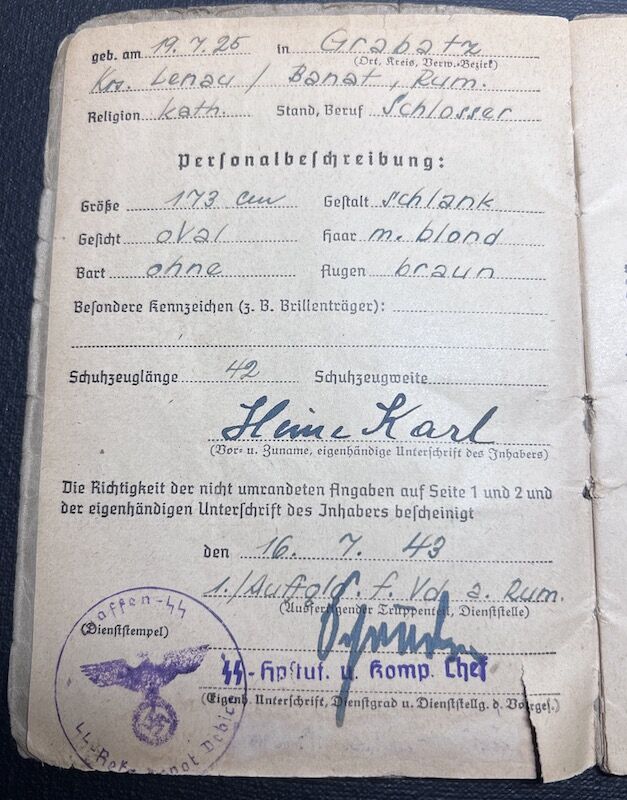 geb. am 19.7.25 in Grabatz
(Ort, Kreis, Verw.-Bezirk)
Krs. Lenau / Banat, Rum.
Religion kath. Stand, Beruf Schlosser
Personalbeschreibung:
Größe 173 cm Gestalt schlank
Gesicht oval Haar m. blond
Bart ohne Augen braun
Besondere Kennzeichen (z. B. Brillenträger):
Schuhzeuglänge 42 Schuhzeugweite
Heine Karl
(Vor- u. Zuname, eigenhändige Unterschrift des Inhabers)
Die Richtigkeit der nicht umrandeten Angaben auf Seite 1 und 2 und
der eigenhändigen Unterschrift des Inhabers bescheinigt
den 16. 7. 43
1./Auffgld. f. Vd. a. Rum.
(Ausfertigender Truppenteil, Dienststelle)
Waffen-SS
(Dienststempel)
SS-Hpstuf. u. Komp. Chef
(Eigenh. Unterschrift, Dienstgrad u. Dienststellg. d. Vorges.)
Debica